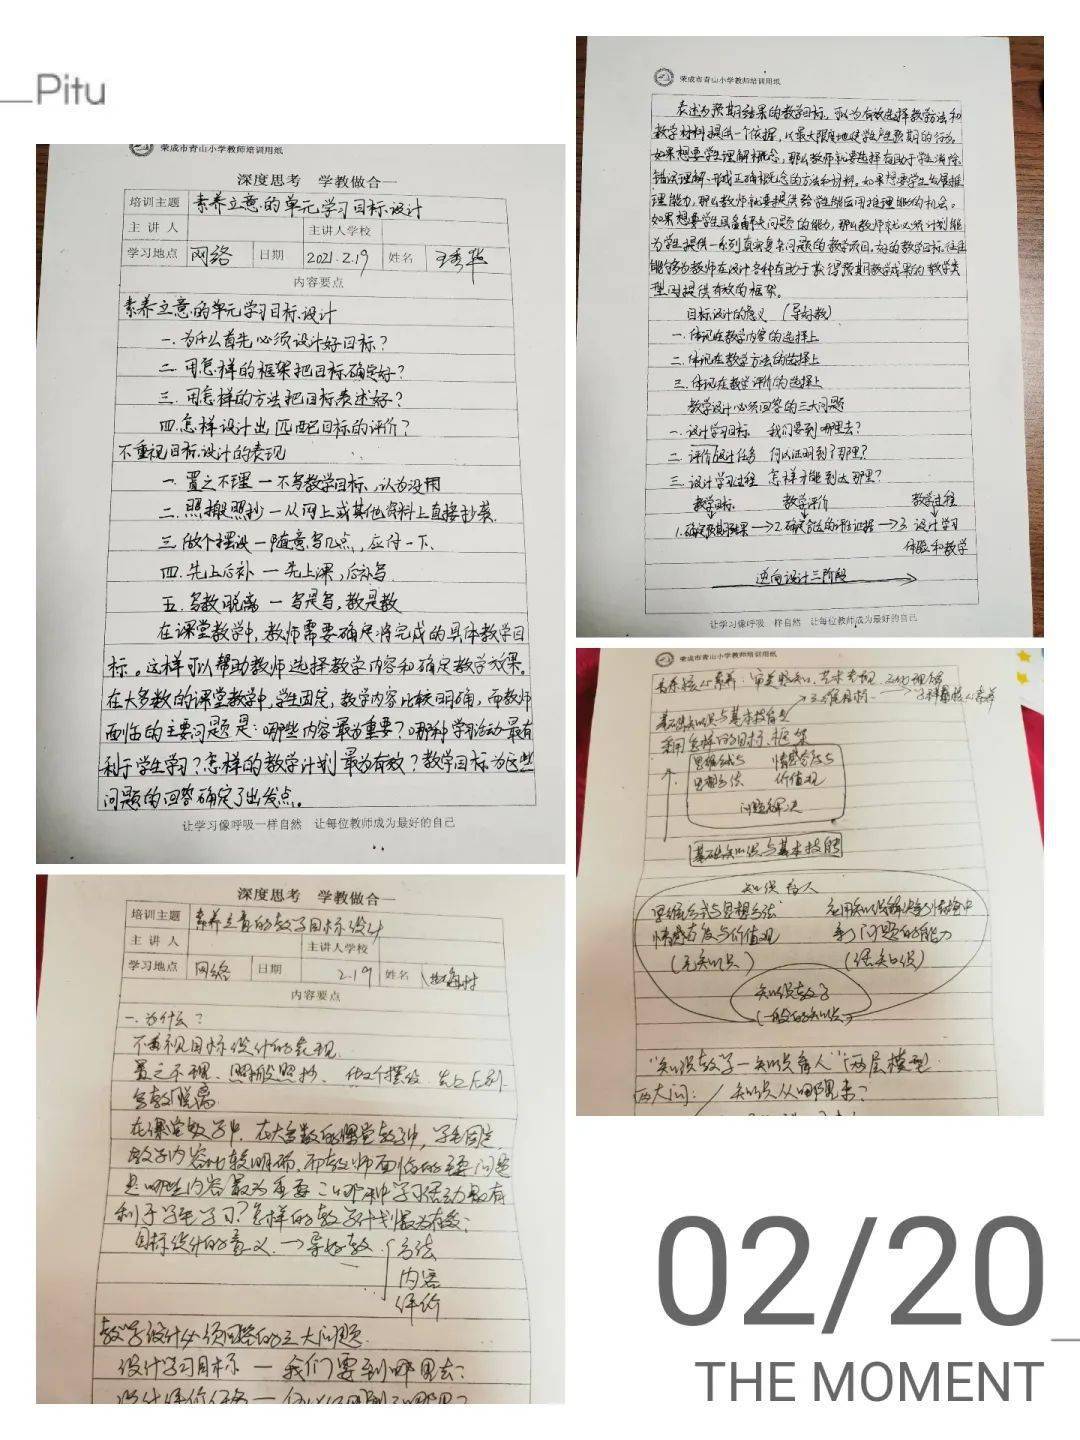 Pitu
荣成市青山小学教师培训用纸
深度思考 学教做合一
培训主题 素养立意的单元学习目标设计
主讲人 主讲人学校
学习地点 网络 日期 2021.2.19 姓名 王秀华
内容要点
素养立意的单元学习目标设计
一.为什么首先必须设计好目标?
二.用怎样的框架把目标确定好?
三.用怎样的方法把目标表述好?
四.怎样设计出匹配目标的评价?
不重视目标设计的表现
一.置之不理—不写教学目标,认为没用
二.照搬照抄—从网上或其他资料上直接抄袭.
三.做个摆设—随意写几点,应付一下.
四.先上后补—先上课,后补写.
五.写教脱离—写是写,教是教
在课堂教学中,教师需要确定将完成的具体教学目
标。这样可以帮助教师选择教学内容和确定教学效果。
在大多数的课堂教学中,学生固定,教学内容比较明确,而教师
面临的主要问题是:哪些内容最为重要?哪种学习活动最有
利于学生学习?怎样的教学计划最为有效?教学目标为这些
问题的回答确定了出发点。
让学习像呼吸一样自然 让每位教师成为最好的自己
荣成市青山小学教师培训用纸
表述为预期结果的教学目标,可以为有效选择教学方法和
教学材料提供一个依据,以最大限度地使学生产生预期的行为.
如果想要学生理解概念,那么教师就要选择有助于学生消除
错误理解、形成正确概念的方法和材料。如果想要学生发展推
理能力,那么教师就要提供给学生能应用推理能力的机会。
如果想要学生具备解决问题的能力,那么教师就必须计划能
为学生提供一系列真实复杂问题的教学项目。好的教学目标往往
能够为教师在设计各种有助于获得预期教学成果的教学类
型时提供有效的框架。
目标设计的意义 (导好教)
一.体现在教学内容的选择上
二.体现在教学方法的选择上
三.体现在教学评价的选择上
教学设计必须回答的三大问题
一.设计学习目标 我们要到哪里去?
二.评价设计任务 何以证明到了那里?
三.设计学习过程 怎样才能到达那里?
教学目标 教学评价 教学过程
1.确定预期结果→2.确定合适的评估证据→3.设计学习
体验和教学
逆向设计三阶段
让学习像呼吸一样自然 让每位教师成为最好的自己
荣成市青山小学教师培训用纸
核心素养:审美感知、艺术表现、文化理解
三维目标 学科核心素养
基础知识与基本技能
采用怎样的目标框架
思维方式与 情感态度与
思想方法 价值观
问题解决
基础知识与基本技能
知识育人
思维方式与思想方法 运用知识解决真实情境中
情感态度与价值观 的问题的能力
知识教学
(一般的知识)
"知识教学—知识育人"两层模型
两大问: 知识从哪里来?
深度思考 学教做合一
培训主题 素养立意的教学目标设计
主讲人 主讲人学校
学习地点 网络 日期 2.19 姓名
内容要点
一.为什么?
不重视目标设计的表现.
置之不理、照搬照抄、做个摆设、先上后补
写教脱离
在课堂教学中,在大多数的课堂教学中,学生固定,
教学内容比较明确,而教师面临的主要问题
是哪些内容最为重要?哪种学习活动最有
利于学生学习?怎样的教学计划最为有效?
目标设计的意义→导好教 方法
内容
评价
教学设计必须回答的三大问题
设计学习目标 — 我们要到哪里去?
设计评价任务 — 何以证明到了那里?
02/20
THE MOMENT